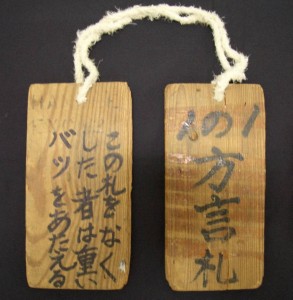 の
方言札
この札をなく
した者は重い
バツをあたえる